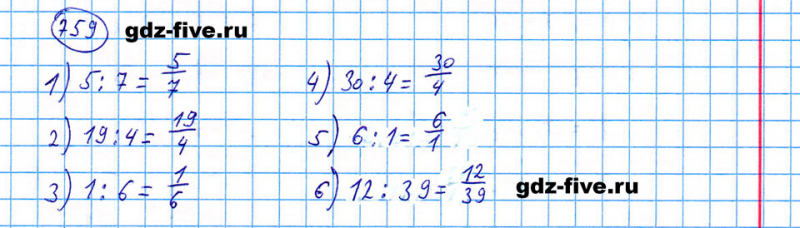 759 gdz-five.ru
1) 5 : 7 = 5/7
4) 30 : 4 = 30/4
2) 19 : 4 = 19/4
5) 6 : 1 = 6/1
3) 1 : 6 = 1/6
6) 12 : 39 = 12/39
gdz-five.ru